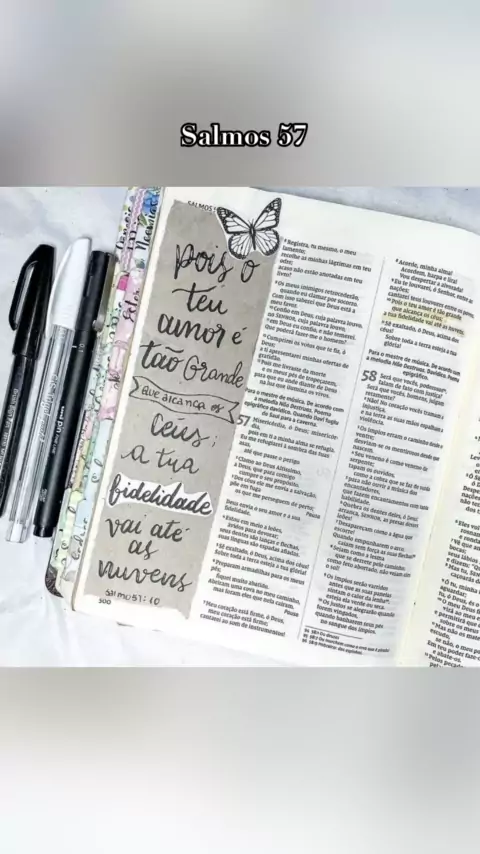 Salmos 57
SALMOS
pois o
teu
amor é
tão grande
que alcança os
céus;
a tua
fidelidade
vai até
as
nuvens
Salmo 57:10
500
Registra, tu mesmo, o meu
lamento;
recolhe as minhas lágrimas em teu
odre;
acaso não estão anotadas em teu
livro?
Os meus inimigos retrocederão,
quando eu clamar por socorro.
Com isso saberei que Deus está a
meu favor.
Confio em Deus, cuja palavra louvo,
no Senhor, cuja palavra louvo,
em Deus eu confio, e não temerei.
Que poderá fazer-me o homem?
Cumprirei os votos que te fiz, ó
Deus;
a ti apresentarei minhas ofertas de
gratidão.
Pois me livraste da morte
e os meus pés de tropeçarem,
para que eu ande diante de Deus
na luz que ilumina os vivos.
Para o mestre de música. De acordo com
a melodia Não Destruas. Poema
epigráfico davídico. Quando Davi fugiu
de Saul para a caverna.
57 Misericórdia, ó Deus; misericór-
dia,
pois em ti a minha alma se refugia.
Eu me refugiarei à sombra das tuas
asas,
até que passe o perigo.
Clamo ao Deus Altíssimo,
a Deus, que para comigo
cumpre o seu propósito.
Dos céus ele me envia a salvação,
põe em fuga
os que me perseguem de perto;
Pausa
Deus envia o seu amor e a sua
fidelidade.
Estou em meio a leões,
ávidos para devorar;
seus dentes são lanças e flechas,
suas línguas são espadas afiadas.
Sê exaltado, ó Deus, acima dos céus!
Sobre toda a terra esteja a tua glória!
Prepararam armadilhas para os meus
pés;
fiquei muito abatido.
Abriram uma cova no meu caminho,
mas foram eles que nela caíram.
Pausa
Meu coração está firme, ó Deus,
meu coração está firme;
cantarei ao som de instrumentos!
Acorde, minha alma!
Acordem, harpa e lira!
Vou despertar a alvorada!
Eu te louvarei, ó Senhor, entre as
nações;
cantarei teus louvores entre os povos.
Pois o teu amor é tão grande
que alcança os céus;
a tua fidelidade vai até as nuvens.
Sê exaltado, ó Deus, acima dos
céus!
Sobre toda a terra esteja a tua
glória!
Para o mestre de música. De acordo com
a melodia Não Destruas. Davídico. Poema
epigráfico.
58 Será que vocês, poderosos,
falam de fato com justiça?
Será que vocês, homens, julgam
retamente?
Não! No coração vocês tramam a
injustiça,
e na terra as suas mãos espalham a
violência.
Os ímpios erram o caminho desde o
ventre;
desviam-se os mentirosos desde que
nascem.
Seu veneno é como veneno de
serpente;
tapam os ouvidos,
como a cobra que se faz de surda
para não ouvir a música dos
encantadores,
Quebra os dentes deles, ó Deus;
arranca, Senhor, as presas desses
leões!
Desapareçam como a água que
escorre!
Quando empunharem o arco,
caiam sem força as suas flechas!
Sejam como a lesma
que se derrete pelo caminho;
como feto abortado, não vejam eles o
sol!
Os ímpios serão varridos
antes que as suas panelas
sintam o calor da lenha,
esteja ela verde ou seca.
Os justos se alegrarão quando
forem vingados,
quando banharem seus pés
no sangue dos ímpios.